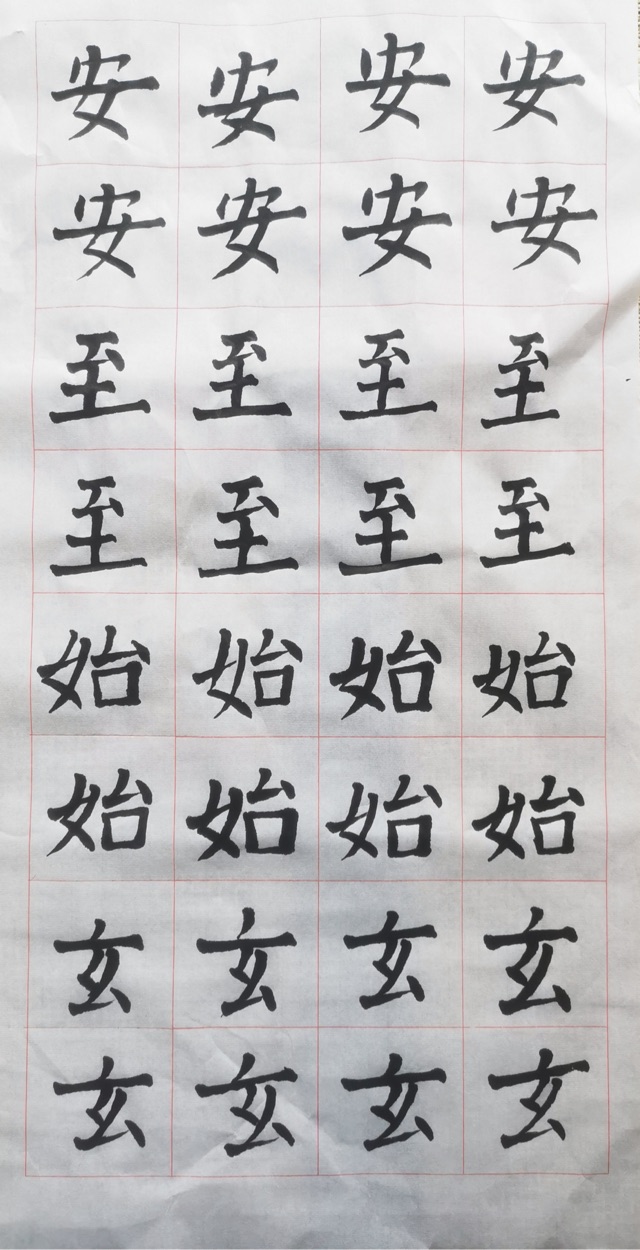 安安安安
安安安安
至至至至
至至至至
始始始始
始始始始
玄玄玄玄
玄玄玄玄